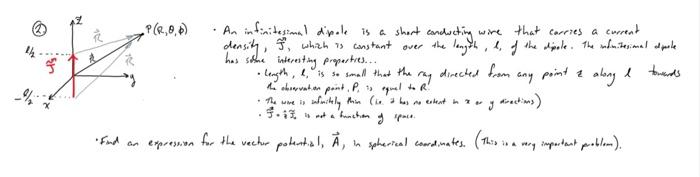 ②
z
P(R,θ,ϕ)
l/2
-l/2
R
x
y
• An infinitesimal dipole is a short conducting wire that carries a current
density, J, which is constant over the length, l, of the dipole. The infinitesimal dipole
has some interesting properties...
• Length, l, is so small that the ray directed from any point z along l towards
the observation point, P, is equal to R.
• The wire is infinitely thin (i.e. it has no extent in x or y directions)
• J = ẑ J₀ is not a function of space.
• Find an expression for the vector potential, A, in spherical coordinates. (This is a very important problem).